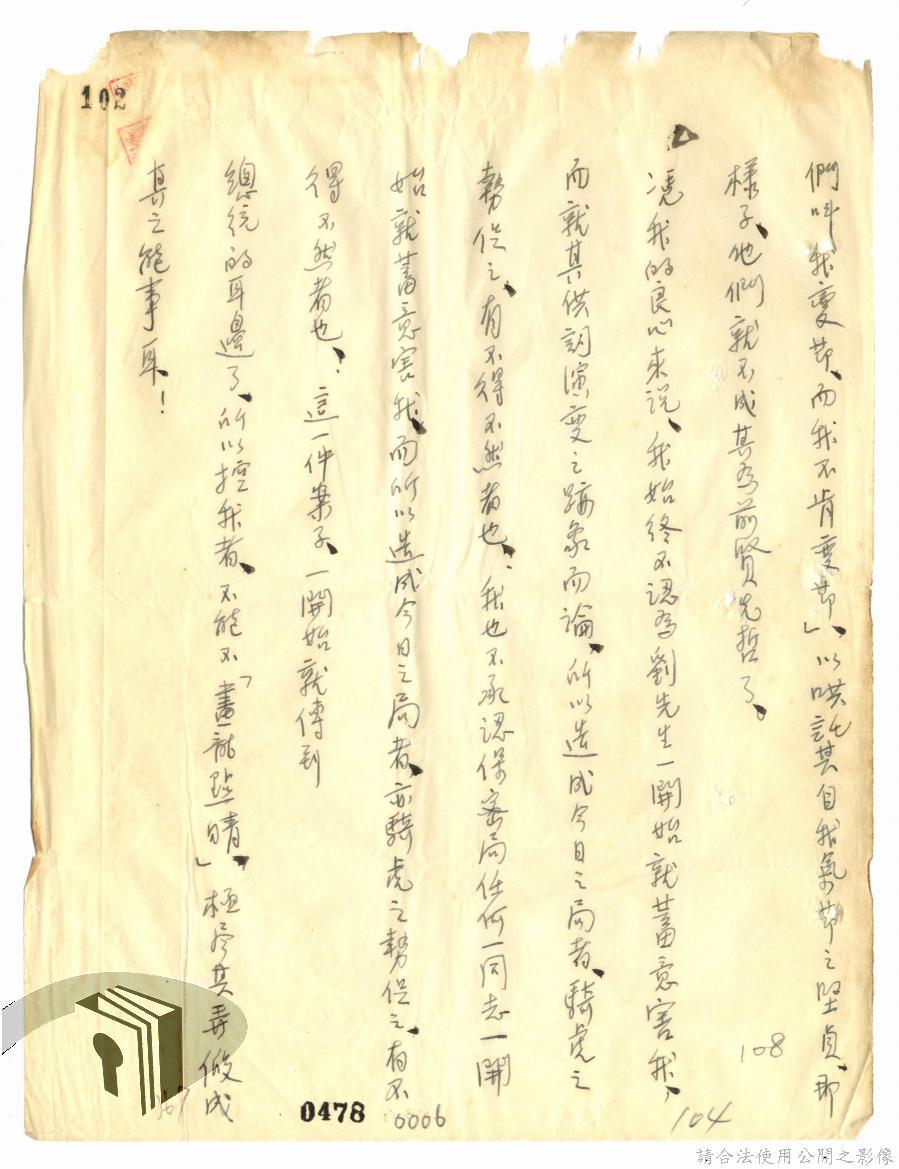 102
們叫我變節、而我不肯變節」、以哄託其自我氣節之堅貞、那
樣子、他們就不成其為前賢先哲了、
憑我的良心來說、我始終不認為劉先生一開始就蓄意害我、
而就其供詞演變之跡象而論、所以造成今日之局者、騎虎之
勢促之、有不得不然者也、我也不承認保密局任何一同志一開
始就蓄意害我、而所以造成今日之局者、亦騎虎之勢促之、有不
得不然者也、！這一件案子、一開始就傳到
總統的耳邊了、所以控我者、不能不「畫龍點睛」、極盡其弄假成
真之能事耳、！
108
104
107
0478
0006
請合法使用公開之影像